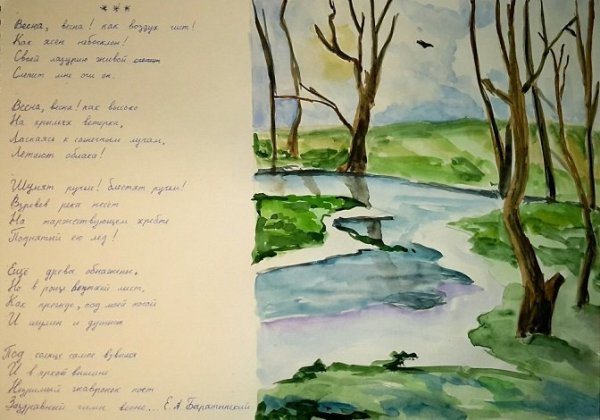 ***
Весна, весна! как воздух чист!
Как ясен небосклон!
Своей лазурию живой
Слепит мне очи он.
Весна, весна! как высоко
На крыльях ветерка,
Ласкаясь к солнечным лучам,
Летают облака!
Шумят ручьи! блестят ручьи!
Взревев река несёт
На торжествующем хребте
Поднятый ею лёд!
Ещё древа обнажены,
Но в роще ветхий лист,
Как прежде, под моей ногой
И шумен и душист
Под солнце самое взвился
И в яркой вышине
Незримый жавронок поёт
Заздравный гимн весне... Е. А. Баратынский